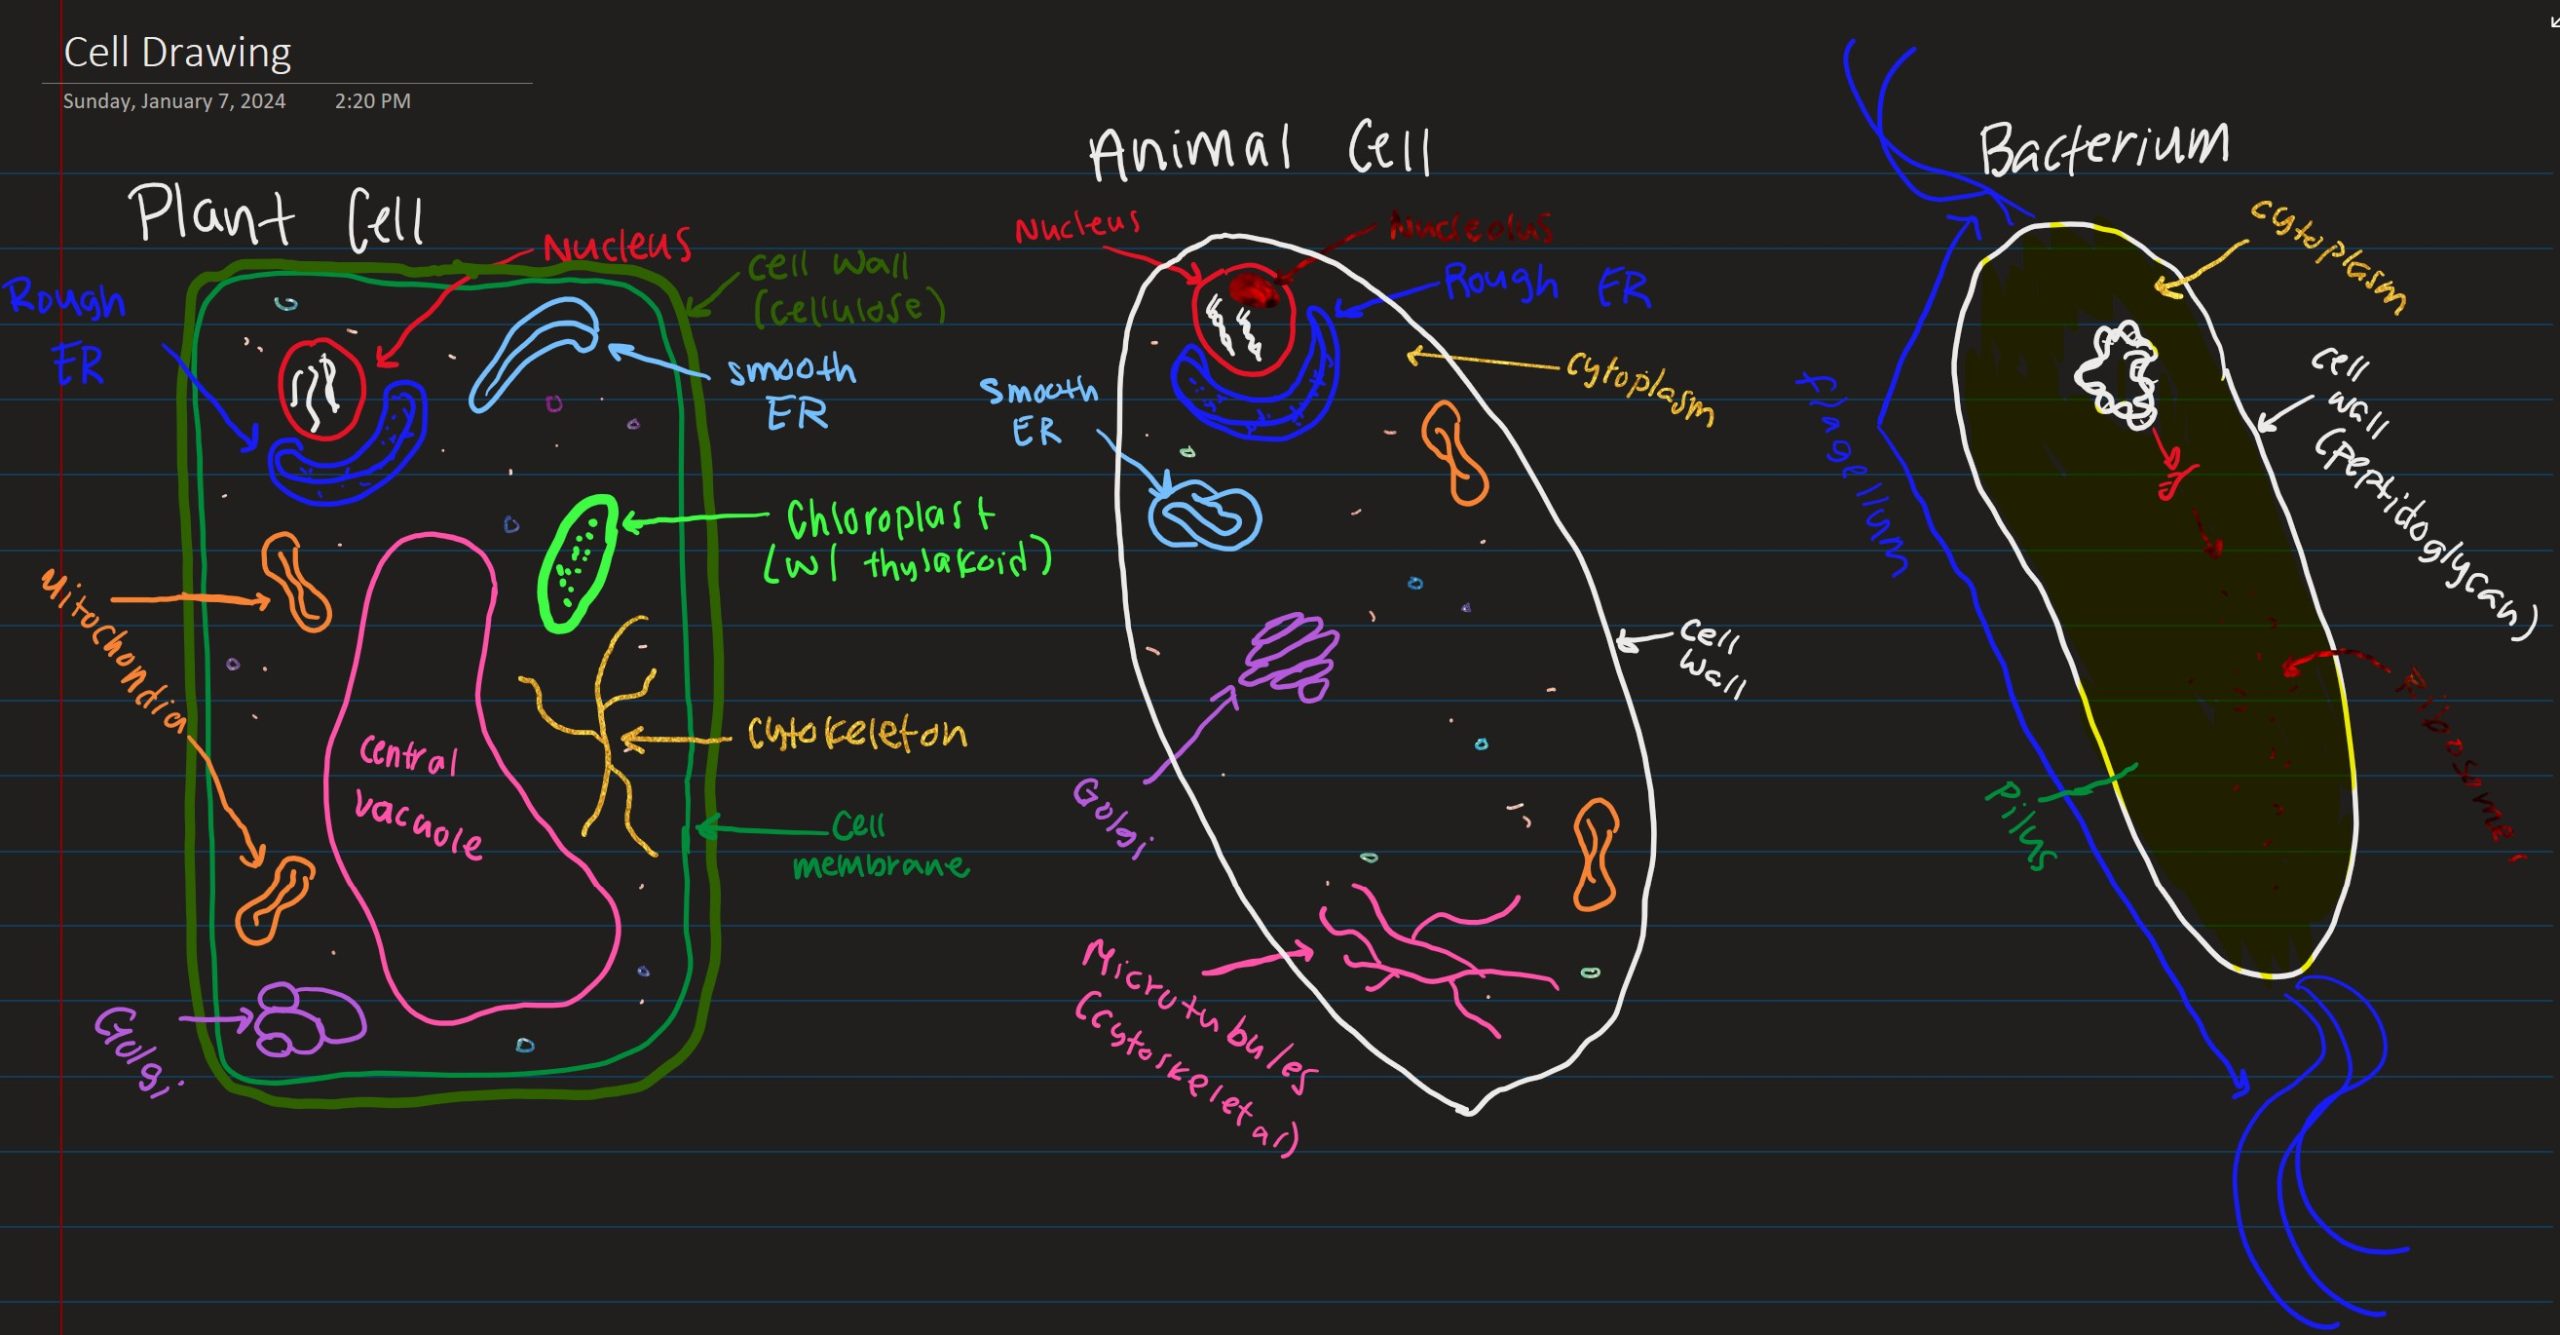 Cell Drawing
Sunday, January 7, 2024 2:20 PM
Plant Cell
Nucleus
cell wall
(cellulose)
Rough
ER
smooth
ER
Chloroplast
(w/ thylakoid)
Mitochondia
central
vacuole
Cytokeleton
Cell
membrane
Golgi
Animal Cell
Nucleus
Nucleolus
Rough ER
cytoplasm
Smooth
ER
Cell
wall
Golgi
Microtubules
(cytoskeletal)
Bacterium
cytoplasm
flagellum
cell
wall
(peptidoglycan)
Ribosomes
Pilus